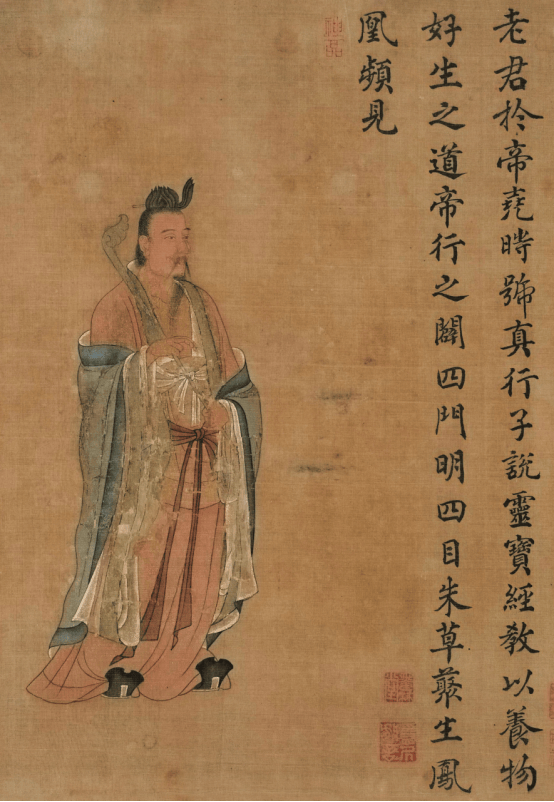 老君於帝堯時號真行子說靈寶經教以養物
好生之道帝行之闢四門明四目朱草叢生鳳
凰頻見